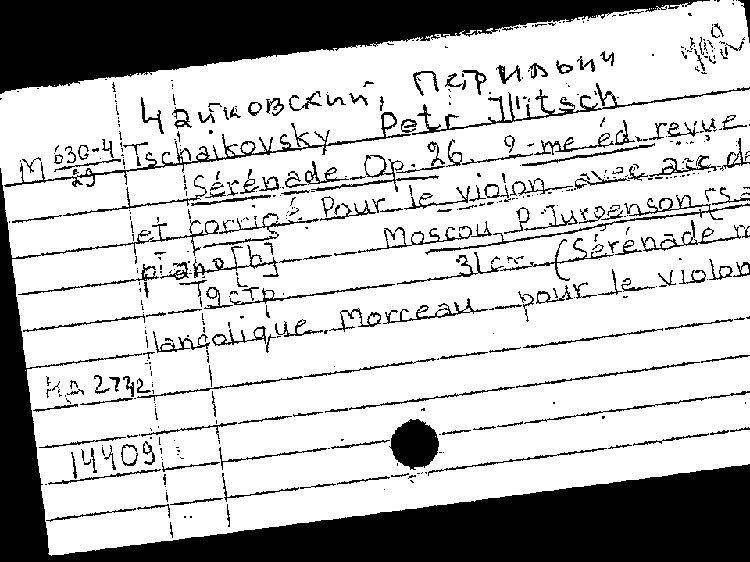 Чайковский, Петр Ильич
М 630-4/29 Tschaikovsky Petr Ilitsch
Sérénade Op. 26. 2-me éd. revue
et corrigé Pour le violon avec acc de
piano [h] Moscou, P. Jurgenson, s.a
19 стр 31 см. (Sérénade m
lancolique. Morceau pour le violon
КД 2772
14409